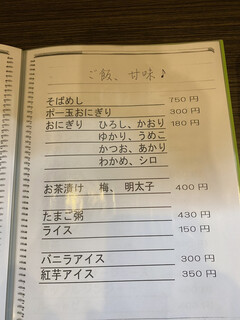 ご飯、甘味♪
そばめし 750円
ポー玉おにぎり 300円
おにぎり ひろし、かおり 180円
ゆかり、うめこ
かつお、あかり
わかめ、シロ
お茶漬け 梅、明太子 400円
たまご粥 430円
ライス 150円
バニラアイス 300円
紅芋アイス 350円